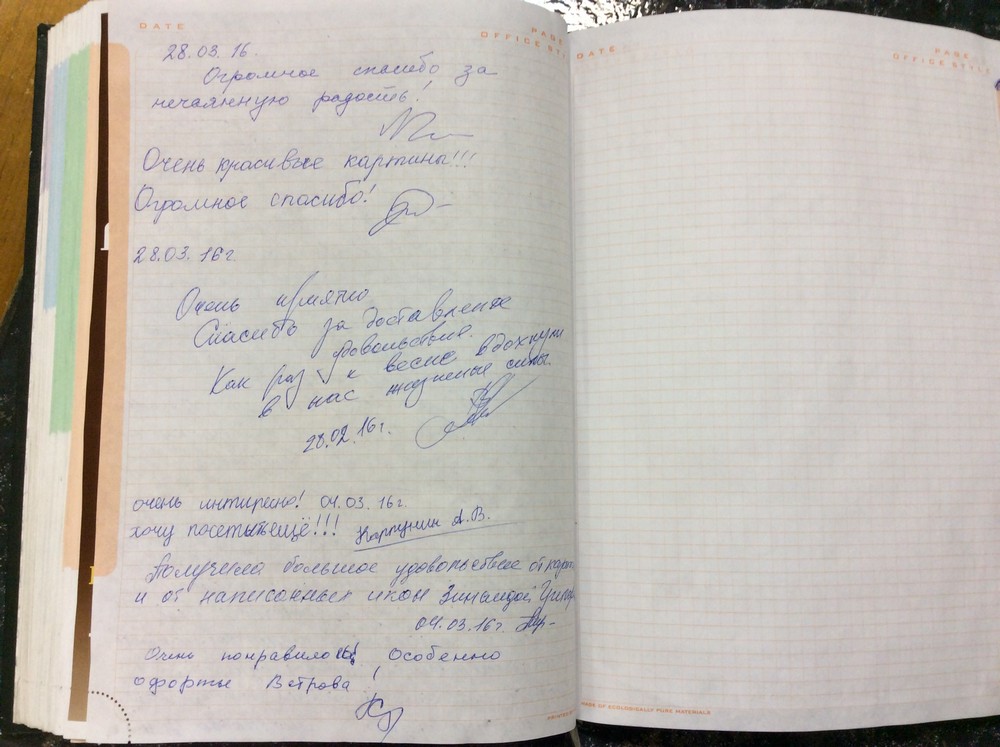 DATE
PAGE
OFFICE STYL
28.03.16.
Огромное спасибо за
нечаянную радость!
Очень красивые картины!!!
Огромное спасибо!
28.03.16г
Очень приятно
Спасибо за доставление
удовольствие.
Как раз к весне вдохнули
в нас жизненые силы.
28.02.16г.
очень интиресно! 04.03.16г.
хочу посетить ещё!!! Картунин А.В.
Получила большое удовольствие от
и от написанных икон Зинаидой
04.03.16г.
Очень понравилось! Особенно
офорты Ветрова!
PRINTED
DATE
PAGE
OFFICE STYLE
MADE OF ECOLOGICALLY PURE MATERIALS